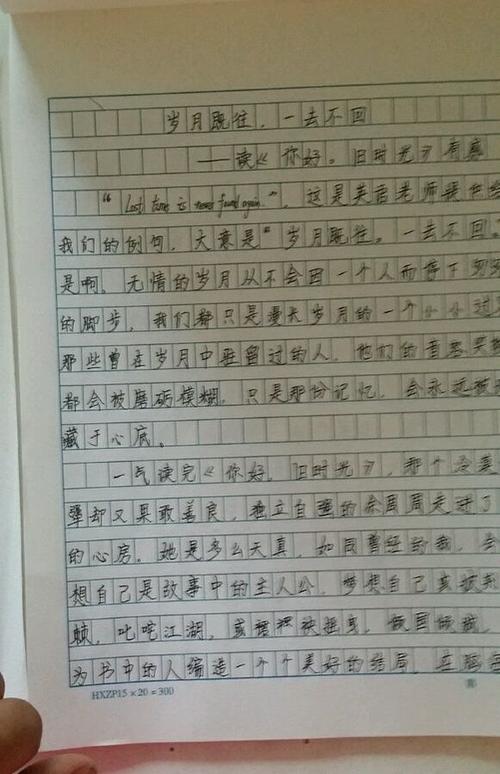 岁月既往，一去不回
——读《你好。旧时光》有感
“Lost time is never found again.”，这是英语老师
我们的例句，大意是“岁月既往。一去不回。
是啊，无情的岁月从不会因一个人而停下
的脚步，我们都只是漫长岁月的一个小小过
那些曾在岁月中驻留过的人，他们的音容笑
都会被磨砺模糊，只是那份记忆，会永远被
藏于心底。
一气读完《你好，旧时光》，那个没
却又果敢善良，独立自强的余周周走进了
的心房。她是多么天真，如同曾经的我，会
想自己是故事中的主人公，梦想自己
叱咤江湖，或裙袂摇曳，
为书中的人编造一个个美好的结局，在脑
HXZP15×20=300